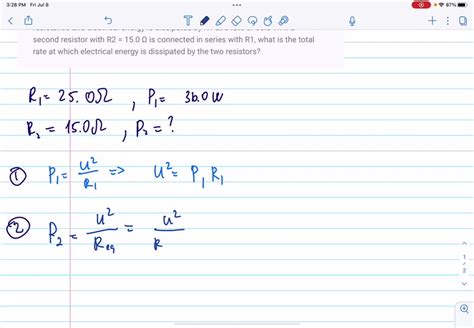 3:28 PM Fri Jul 8
87%
second resistor with R2 = 15.0 Ω is connected in series with R1, what is the total
rate at which electrical energy is dissipated by the two resistors?
R₁ = 25.0Ω , P₁ = 36.0 W
R₂ = 15.0Ω , P₂ = ?
① P₁ = u²/R₁ => u² = P₁ R₁
② P₂ = u²/Req = u²/R
1
2